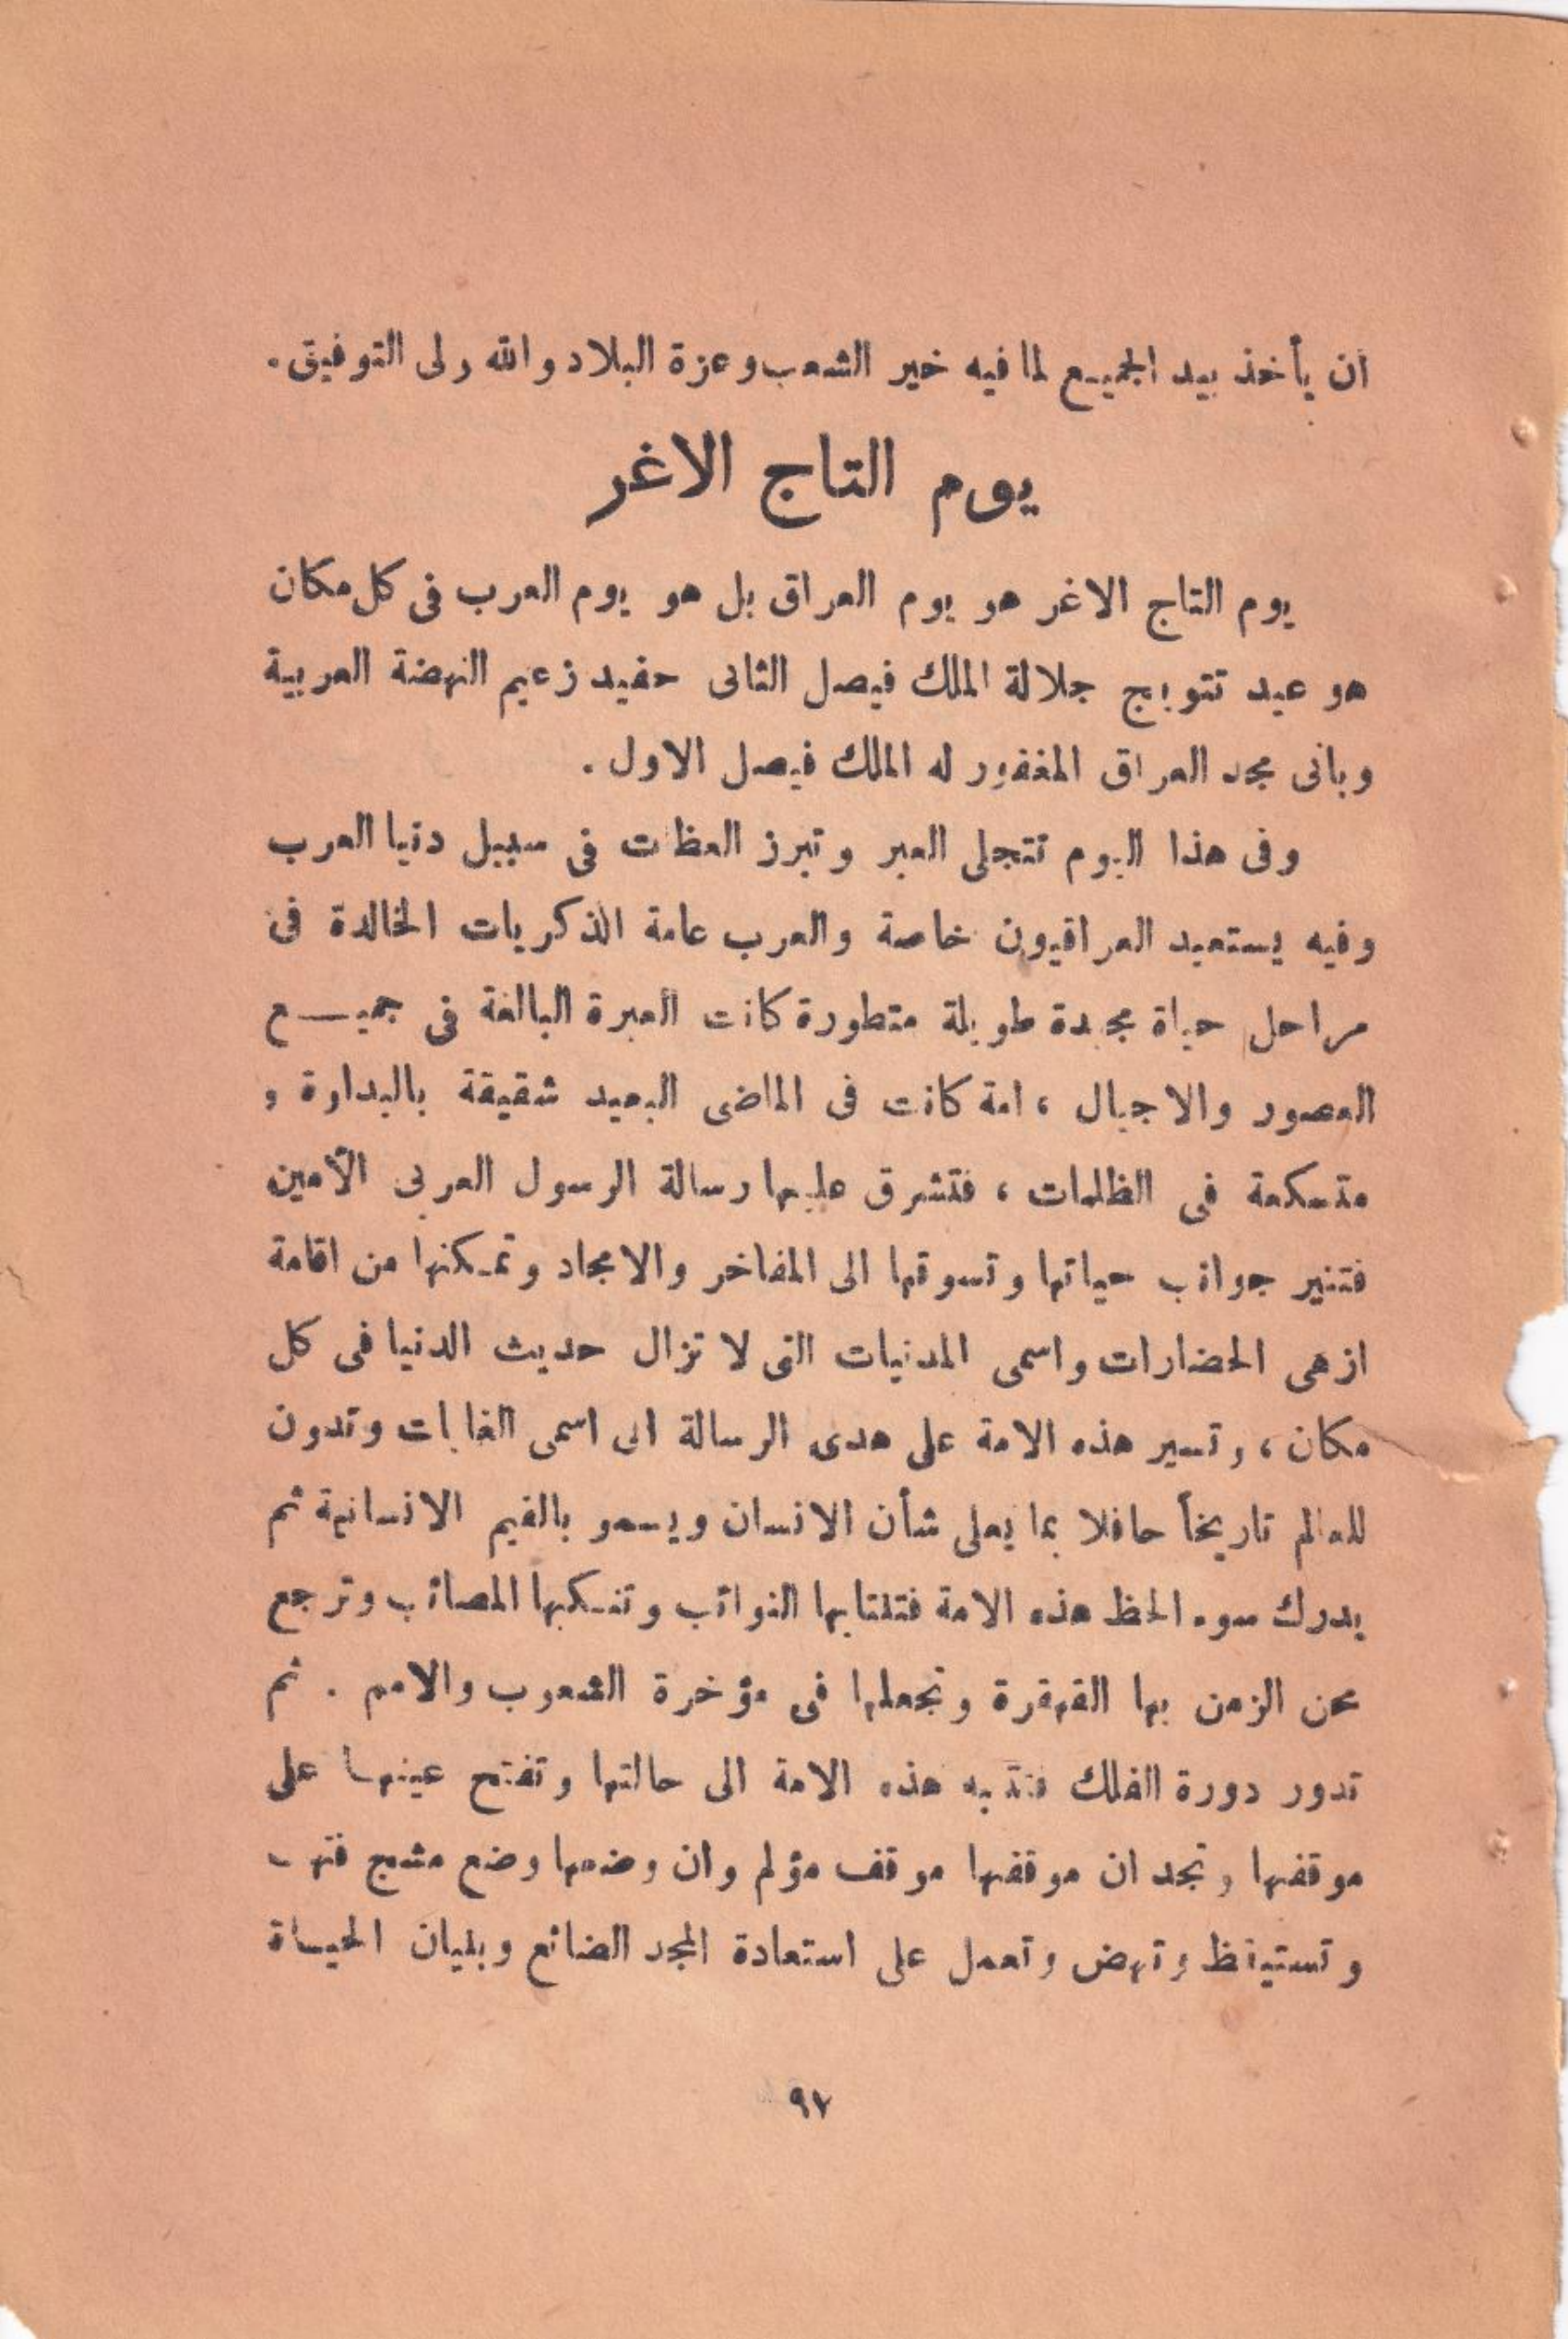 ان يأخذ بيد الجميع لما فيه خير الشعب وعزة البلاد والله ولى التوفيق.
يوم التاج الاغر
يوم التاج الاغر هو يوم العراق بل هو يوم العرب فى كل مكان
هو عيد تتويج جلالة الملك فيصل الثانى حفيد زعيم النهضة العربية
وبانى مجد العراق المغفور له الملك فيصل الاول .
وفى هذا اليوم تتجلى العبر وتبرز العظات فى سبيل دنيا العرب
وفيه يستعيد العراقيون خاصة والعرب عامة الذكريات الخالدة فى
مراحل حياة مجيدة طويلة متطورة كانت العبرة البالغة فى جميع
العصور والاجيال ، امة كانت فى الماضى البعيد شقيقة بالبداوة و
متسكعة فى الظلمات ، فتشرق عليها رسالة الرسول العربى الأمين
فتنير جوانب حياتها وتسوقها الى المفاخر والامجاد وتمكنها من اقامة
ازهى الحضارات واسمى المدنيات التى لا تزال حديث الدنيا فى كل
مكان ، وتسير هذه الامة على هدى الرسالة الى اسمى الغايات وتدون
للعالم تاريخاً حافلا بما يعلى شأن الانسان ويسمو بالقيم الانسانية ثم
يدرك سوء الحظ هذه الامة فتنتابها النوائب وتنكبها المصائب وترجع
محن الزمن بها القهقرة وتجعلها فى مؤخرة الشعوب والامم . ثم
تدور دورة الفلك فتنتبه هذه الامة الى حالتها وتفتح عينها على
موقفها وتجد ان موقفها موقف مؤلم وان وضعها وضع مشج فتهب
وتستيقظ وتنهض وتعمل على استعادة المجد الضائع وبنيان الحياة
٩٧